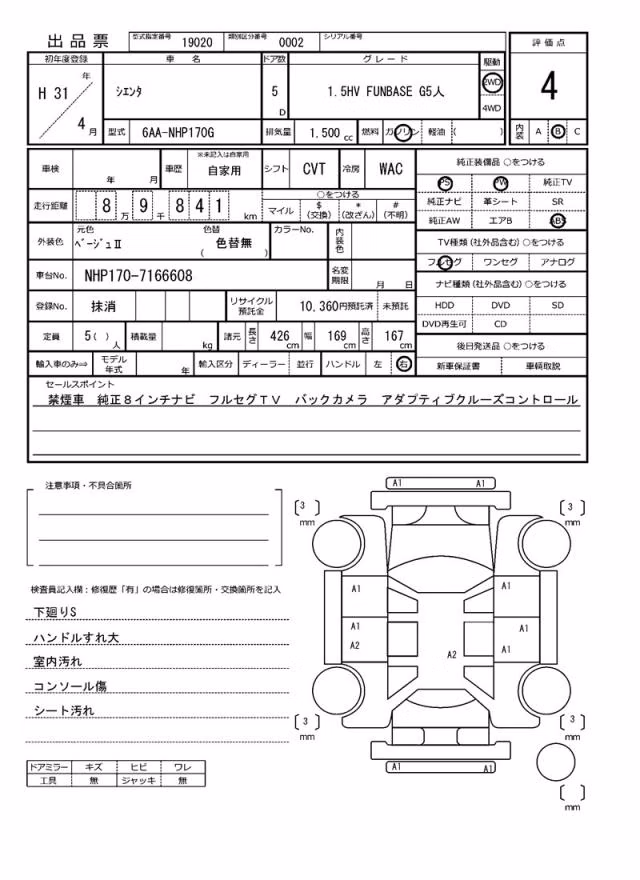 出品票 型式指定番号 19020 類別区分番号 0002 シリアル番号
初年度登録 車名 ドア数 グレード 駆動 評価点
H 31年 4月 シエンタ 5D 1.5HV FUNBASE G5人 2WD 4WD 4
型式 6AA-NHP170G 排気量 1.500 cc 燃料 ガソリン 軽油 ( ) 内装 A B C
車検 年 月 車歴 ※未記入は自家用 自家用 シフト CVT 冷房 WAC 純正装備品 ○をつける
PS PW 純正TV
走行距離 8万 9千 841 km ○をつける マイル $(交換) *(改ざん) #(不明) 純正ナビ 革シート SR
純正AW エアB ABS
外装色 元色 ベージュⅡ 色替 ( 色替無 ) カラーNo. 内装色 TV種類 (社外品含む) ○をつける
フルセグ ワンセグ アナログ
車台No. NHP170-7166608 名変期限 月 日 ナビ種類 (社外品含む) ○をつける
登録No. 抹消 リサイクル預託金 10,360円預託済 未預託 HDD DVD SD
DVD再生可 CD
定員 5( )人 積載量 kg 諸元 長さ 426cm 幅 169cm 高さ 167cm 後日発送品 ○をつける
輸入車のみ⇒ モデル年式 年 輸入区分 ディーラー 並行 ハンドル 左 右 新車保証書 車輌取説
セールスポイント
禁煙車 純正8インチナビ フルセグTV バックカメラ アダプティブクルーズコントロール
注意事項・不具合箇所
検査員記入欄:修復歴「有」の場合は修復箇所・交換箇所を記入
下廻りS
ハンドルすれ大
室内汚れ
コンソール傷
シート汚れ
ドアミラー キズ ヒビ ワレ
工具 無 ジャッキ 無
A1 A1
[3] mm [3] mm
A1 A1
A1 A1
A2 A2 A1
[3] mm [3] mm
A1 A1
[ ] mm